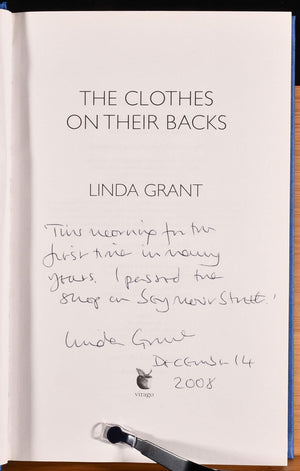 THE CLOTHES
ON THEIR BACKS
LINDA GRANT
'This morning for the
first time in many
years, I passed the
shop on Seymour Street.'
Linda Grant
DECEMBER 14
2008
virago